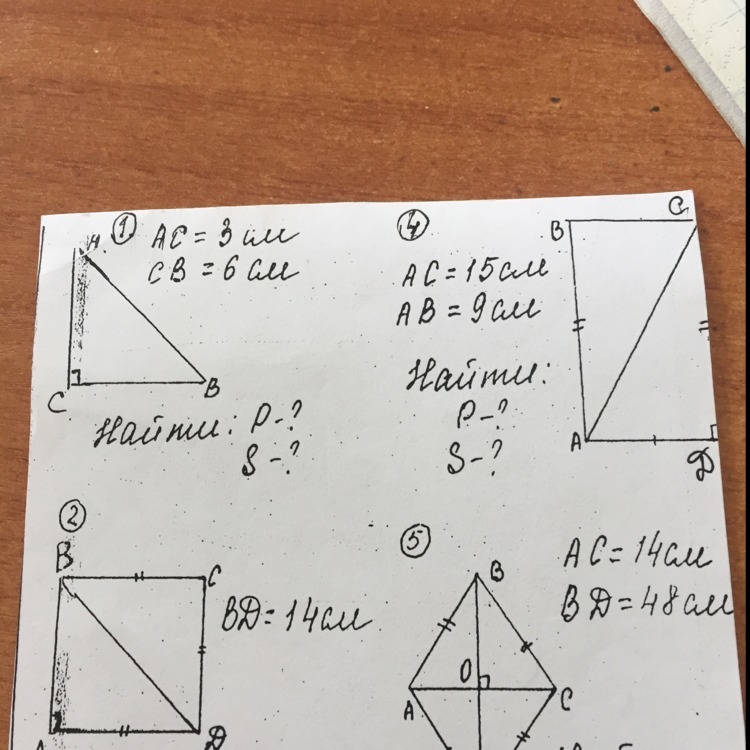 ① AC = 3 см
CB = 6 см
A
C
B
Найти: P-?
S-?
④
AC = 15 см
AB = 9 см
Найти:
P-?
S-?
B
C
A
D
②
B
C
BD = 14 см
A
D
⑤
AC = 14 см
BD = 48 см
B
O
A
C